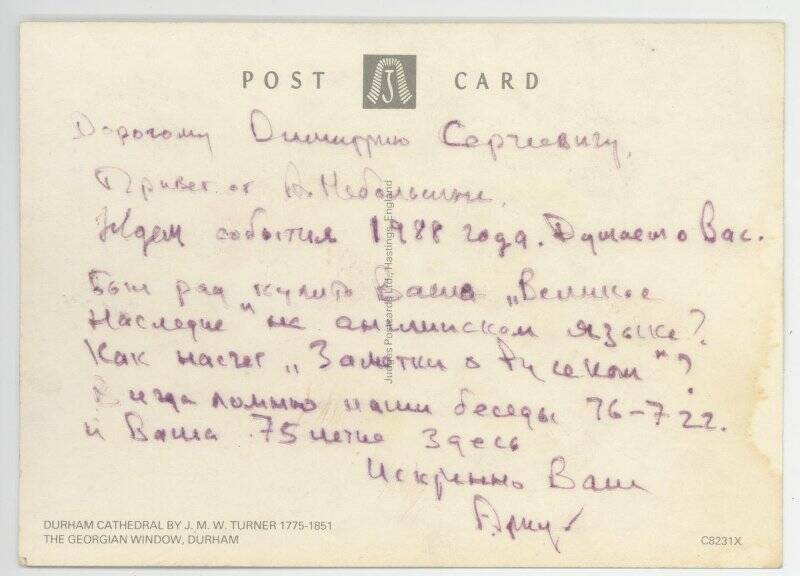 POST CARD
Дорогому Димитрию Сергеевичу,
Привет от
Ждем события 1988 года. Думаем о Вас.
Был рад купить Ваше „Великое
Наследие" на английском языке?
Как насчет „Заметки о Русском"?
Всегда помню наши беседы 76-7 22.
и Ваше 75 летие здесь
Искренно Ваш
Judges Postcards Ltd., Hastings, England
DURHAM CATHEDRAL BY J. M. W. TURNER 1775-1851
THE GEORGIAN WINDOW, DURHAM
C8231X